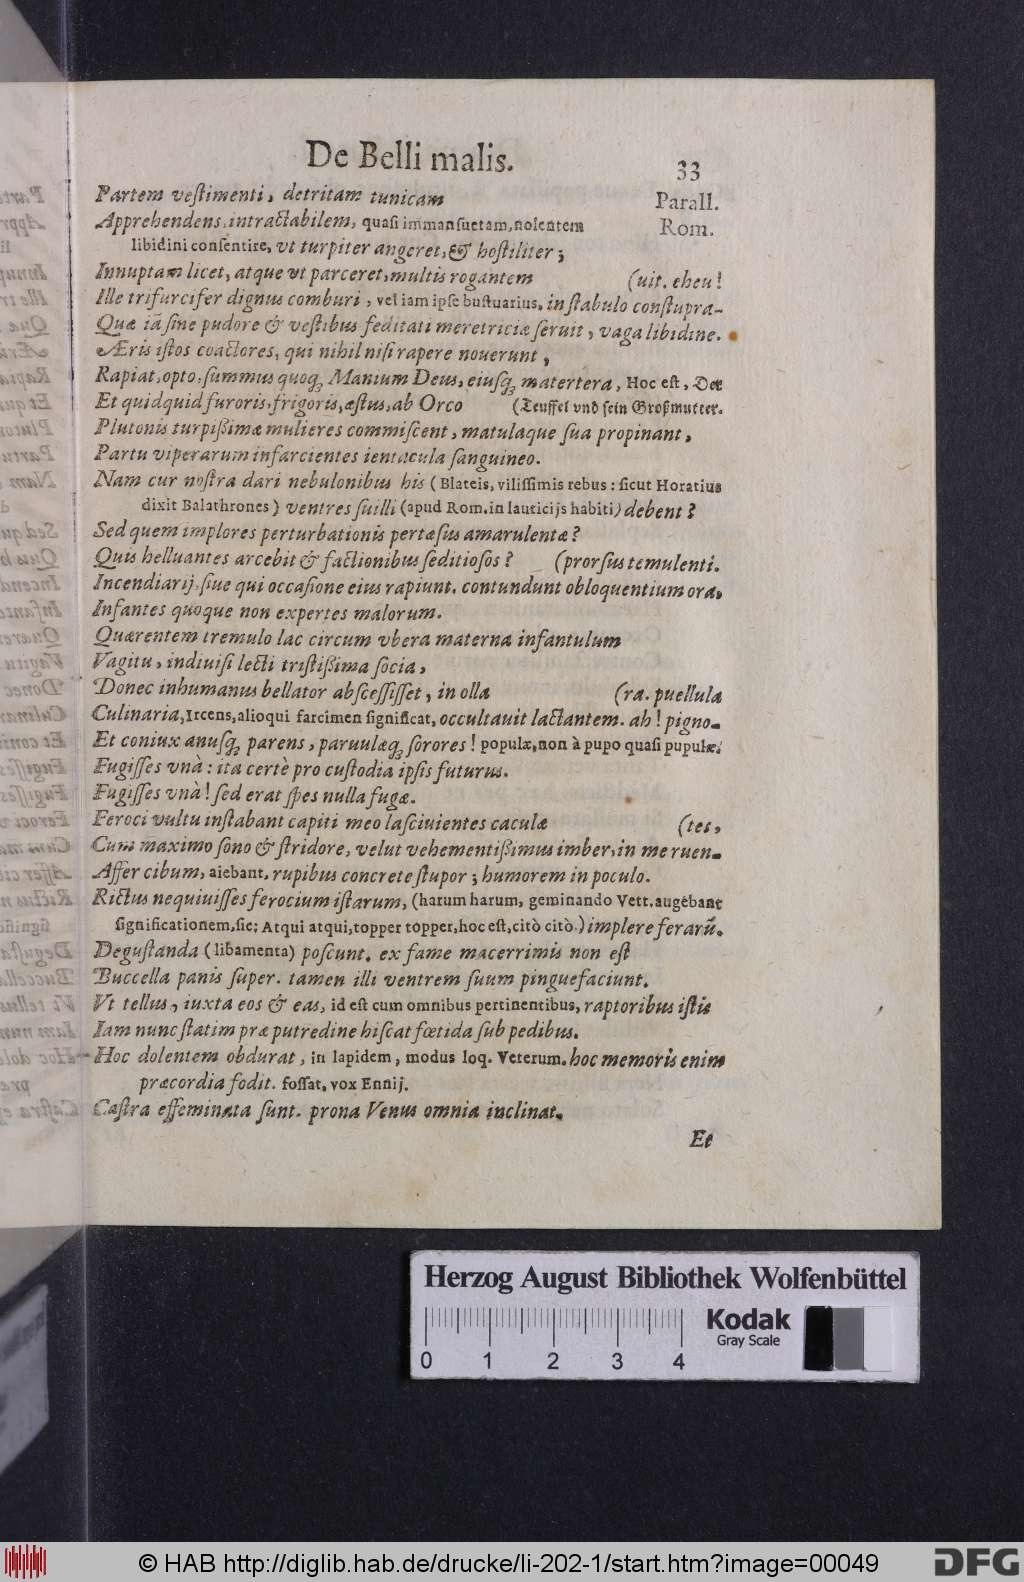 De Belli malis.
33
Parall.
Rom.
Partem vestimenti, detritam tunicam
Apprehendens, intractabilem, quasi immansuetam, nolentem
libidini consentire, vt turpiter angeret, & hostiliter;
Innuptam licet, atque vt parceret, multis rogantem (uit. eheu!
Ille trifurcifer dignus comburi, vel iam ipse bustuarius, in stabulo constupra-
Quæ iã sine pudore & vestibus feditati meretriciæ seruit, vaga libidine.
Æris istos coactores, qui nihil nisi rapere nouerunt,
Rapiat, opto, summus quoq; Manium Deus, eiusq; matertera, Hoc est, Der
Et quidquid furoris, frigoris, æstus, ab Orco (Teuffel vnd sein Großmutter.
Plutonis turpißimæ mulieres commiscent, matulaque sua propinant,
Partu viperarum infarcientes ientacula sanguineo.
Nam cur nostra dari nebulonibus his (Blateis, vilissimis rebus: sicut Horatius
dixit Balathrones) ventres suilli (apud Rom. in lauticijs habiti) debent?
Sed quem implores perturbationis pertæsius amarulentæ?
Quis helluantes arcebit & factionibus seditiosos? (prorsus temulenti.
Incendiarij, siue qui occasione eius rapiunt. contundunt obloquentium ora,
Infantes quoque non expertes malorum.
Quærentem tremulo lac circum vbera materna infantulum
Vagitu, indiuisi lecti tristißima socia,
Donec inhumanus bellator abscessisset, in olla (ra. puellula
Culinaria, Ircens, alioqui farcimen significat, occultauit lactantem. ah! pigno-
Et coniux anusq; parens, paruulæq; sorores! populæ, non à pupo quasi pupulæ.
Fugisses vnà: ita certè pro custodia ipsis futurus.
Fugisses vnà! sed erat spes nulla fugæ.
Feroci vultu instabant capiti meo lasciuientes caculæ (tes,
Cum maximo sono & stridore, velut vehementißimus imber, in me ruen-
Affer cibum, aiebant, rupibus concrete stupor; humorem in poculo.
Rictus nequiuisses ferocium istarum, (harum harum, geminando Vett. augebant
significationem, sic; Atqui atqui, topper topper, hoc est, citò citò.) implere ferarũ.
Degustanda (libamenta) poscunt. ex fame macerrimis non est
Buccella panis super. tamen illi ventrem suum pinguefaciunt.
Vt tellus, iuxta eos & eas, id est cum omnibus pertinentibus, raptoribus istis
Iam nunc statim præ putredine hiscat fœtida sub pedibus.
Hoc dolentem obdurat, in lapidem, modus loq. Veterum. hoc memoris enim
præcordia fodit. fossat, vox Ennij.
Castra effeminata sunt. prona Venus omnia inclinat.
Et
Herzog August Bibliothek Wolfenbüttel
0 1 2 3 4
Kodak
Gray Scale
© HAB http://diglib.hab.de/drucke/li-202-1/start.htm?image=00049
DFG